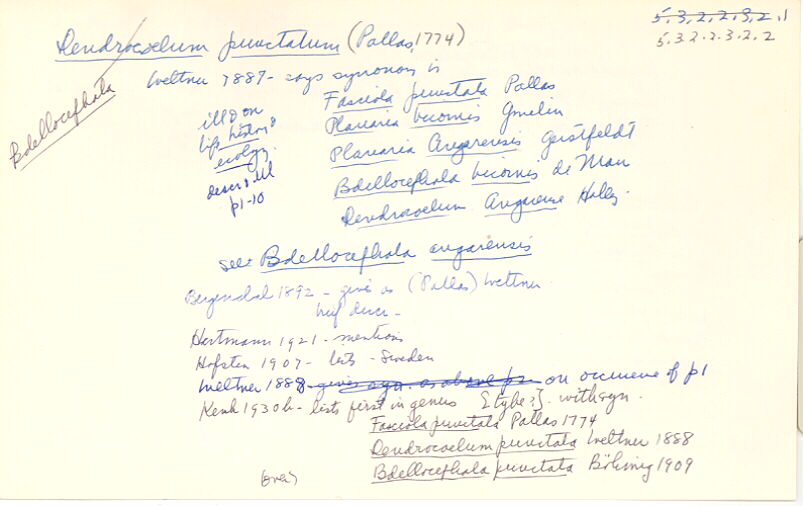 5.3.2.2.3.2.1
5.3.2.2.3.2.2
Dendrocoelum punctatum (Pallas, 1774)
Bdellocephala
Weltner 1887 - says synonym is
Fasciola punctata Pallas
ill & on Planaria bicornis Gmelin
life history &
ecology. Planaria Angarensis Gerstfeldt
descr & ill Bdellocephala bicornis de Man
p1-10
Dendrocoelum Angarense Hallez.
see Bdellocephala angarensis
Bergendal 1892 - gives as (Pallas) Weltner
brief descr -
Hartmann 1921 - mentions
Hofsten 1907 - lists - Sweden
Weltner 1888 - gives syn. as above p2 - on occurence of p1
Kenk 1930b - lists first in genus [type?]. with syn.
Fasciola punctata Pallas 1774
Dendrocoelum punctata Weltner 1888
Bdellocephala punctata Böhmig 1909
(over)